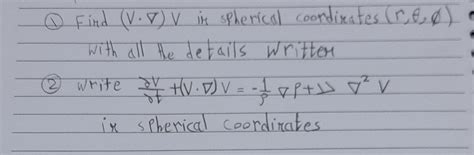 ① Find (V·∇) V in spherical coordinates (r, θ, ϕ)
with all the details written
② write ∂V/∂t + (V·∇) V = -1/ρ ∇P + ν ∇² V
in spherical coordinates